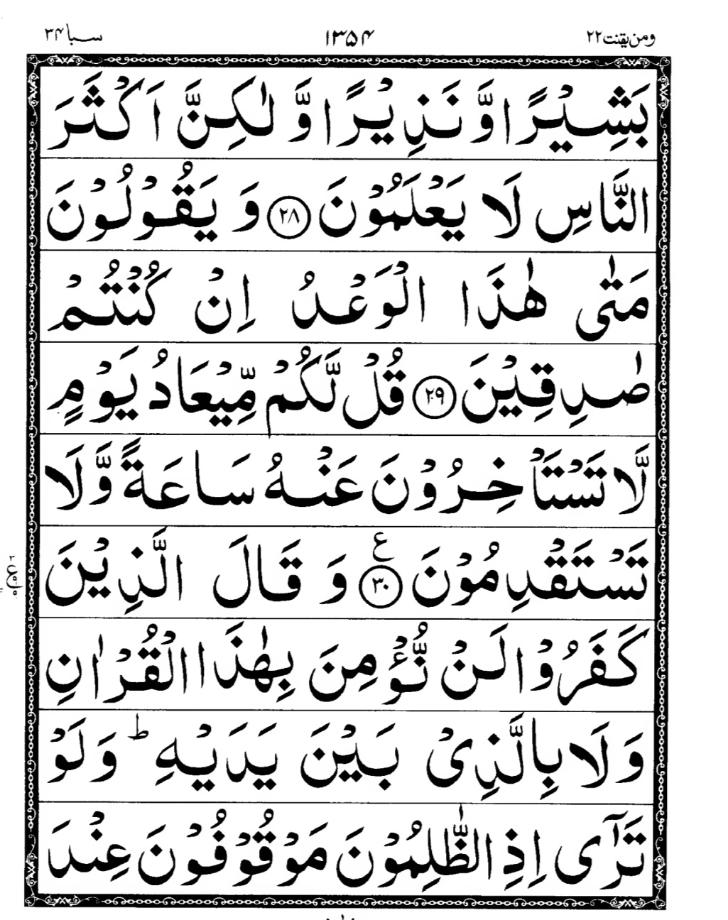 ومن یقنت ۲۲ ۱۳۵۴ سبا ۳۴
بَشِیْرًا وَّ نَذِیْرًا وَّ لٰکِنَّ اَکْثَرَ
النَّاسِ لَا یَعْلَمُوْنَ ﴿۲۸﴾ وَ یَقُوْلُوْنَ
مَتٰی هٰذَا الْوَعْدُ اِنْ کُنْتُمْ
صٰدِقِیْنَ ﴿۲۹﴾ قُلْ لَّکُمْ مِّیْعَادُ یَوْمٍ
لَّا تَسْتَاْخِرُوْنَ عَنْهُ سَاعَةً وَّلَا
تَسْتَقْدِمُوْنَ ﴿۳۰﴾ ع وَ قَالَ الَّذِیْنَ
کَفَرُوْا لَنْ نُّؤْمِنَ بِهٰذَا الْقُرْاٰنِ
وَلَا بِالَّذِیْ بَیْنَ یَدَیْهِ ؕ وَلَوْ
تَرٰۤی اِذِ الظّٰلِمُوْنَ مَوْقُوْفُوْنَ عِنْدَ